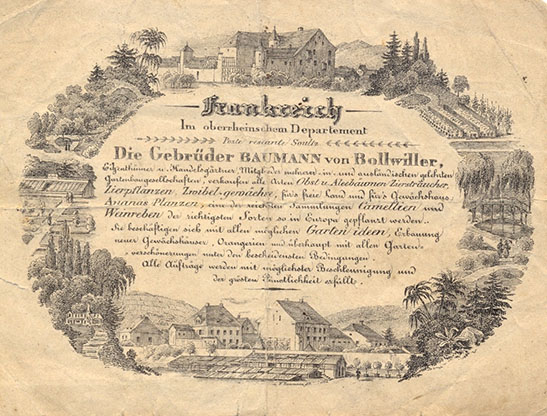 Frankreich
Im oberrheinschem Departement
Poste restante Soultz
Die Gebrüder BAUMANN von Bollwiller,
Eigenthümer u. Handelsgärtner, Mitglieder mehrerer in- und ausländischen gelehrten
Gartenbaugesellschaften, verkaufen alle Arten Obst u. Alleebäumen Ziersträucher,
Zierpflanzen, Zwibel-gewächse, für's freie Land und für's Gewächshaus,
Ananas Planzen, eine der reichsten Sammlungen Camellien und
Weinreben der richtigsten Sorten so in Europa gepflanzt werden.
Sie beschäftigen sich mit allen möglichen Garten ideen, Erbauung
neuer Gewächshäuser, Orangerien und überhaupt mit allen Garten-
verschönerungen unter den bescheidensten Bedingungen.
Alle Aufträge werden mit möglichster Beschleunigung und
der grösten Pünktlichkeit erfüllt.